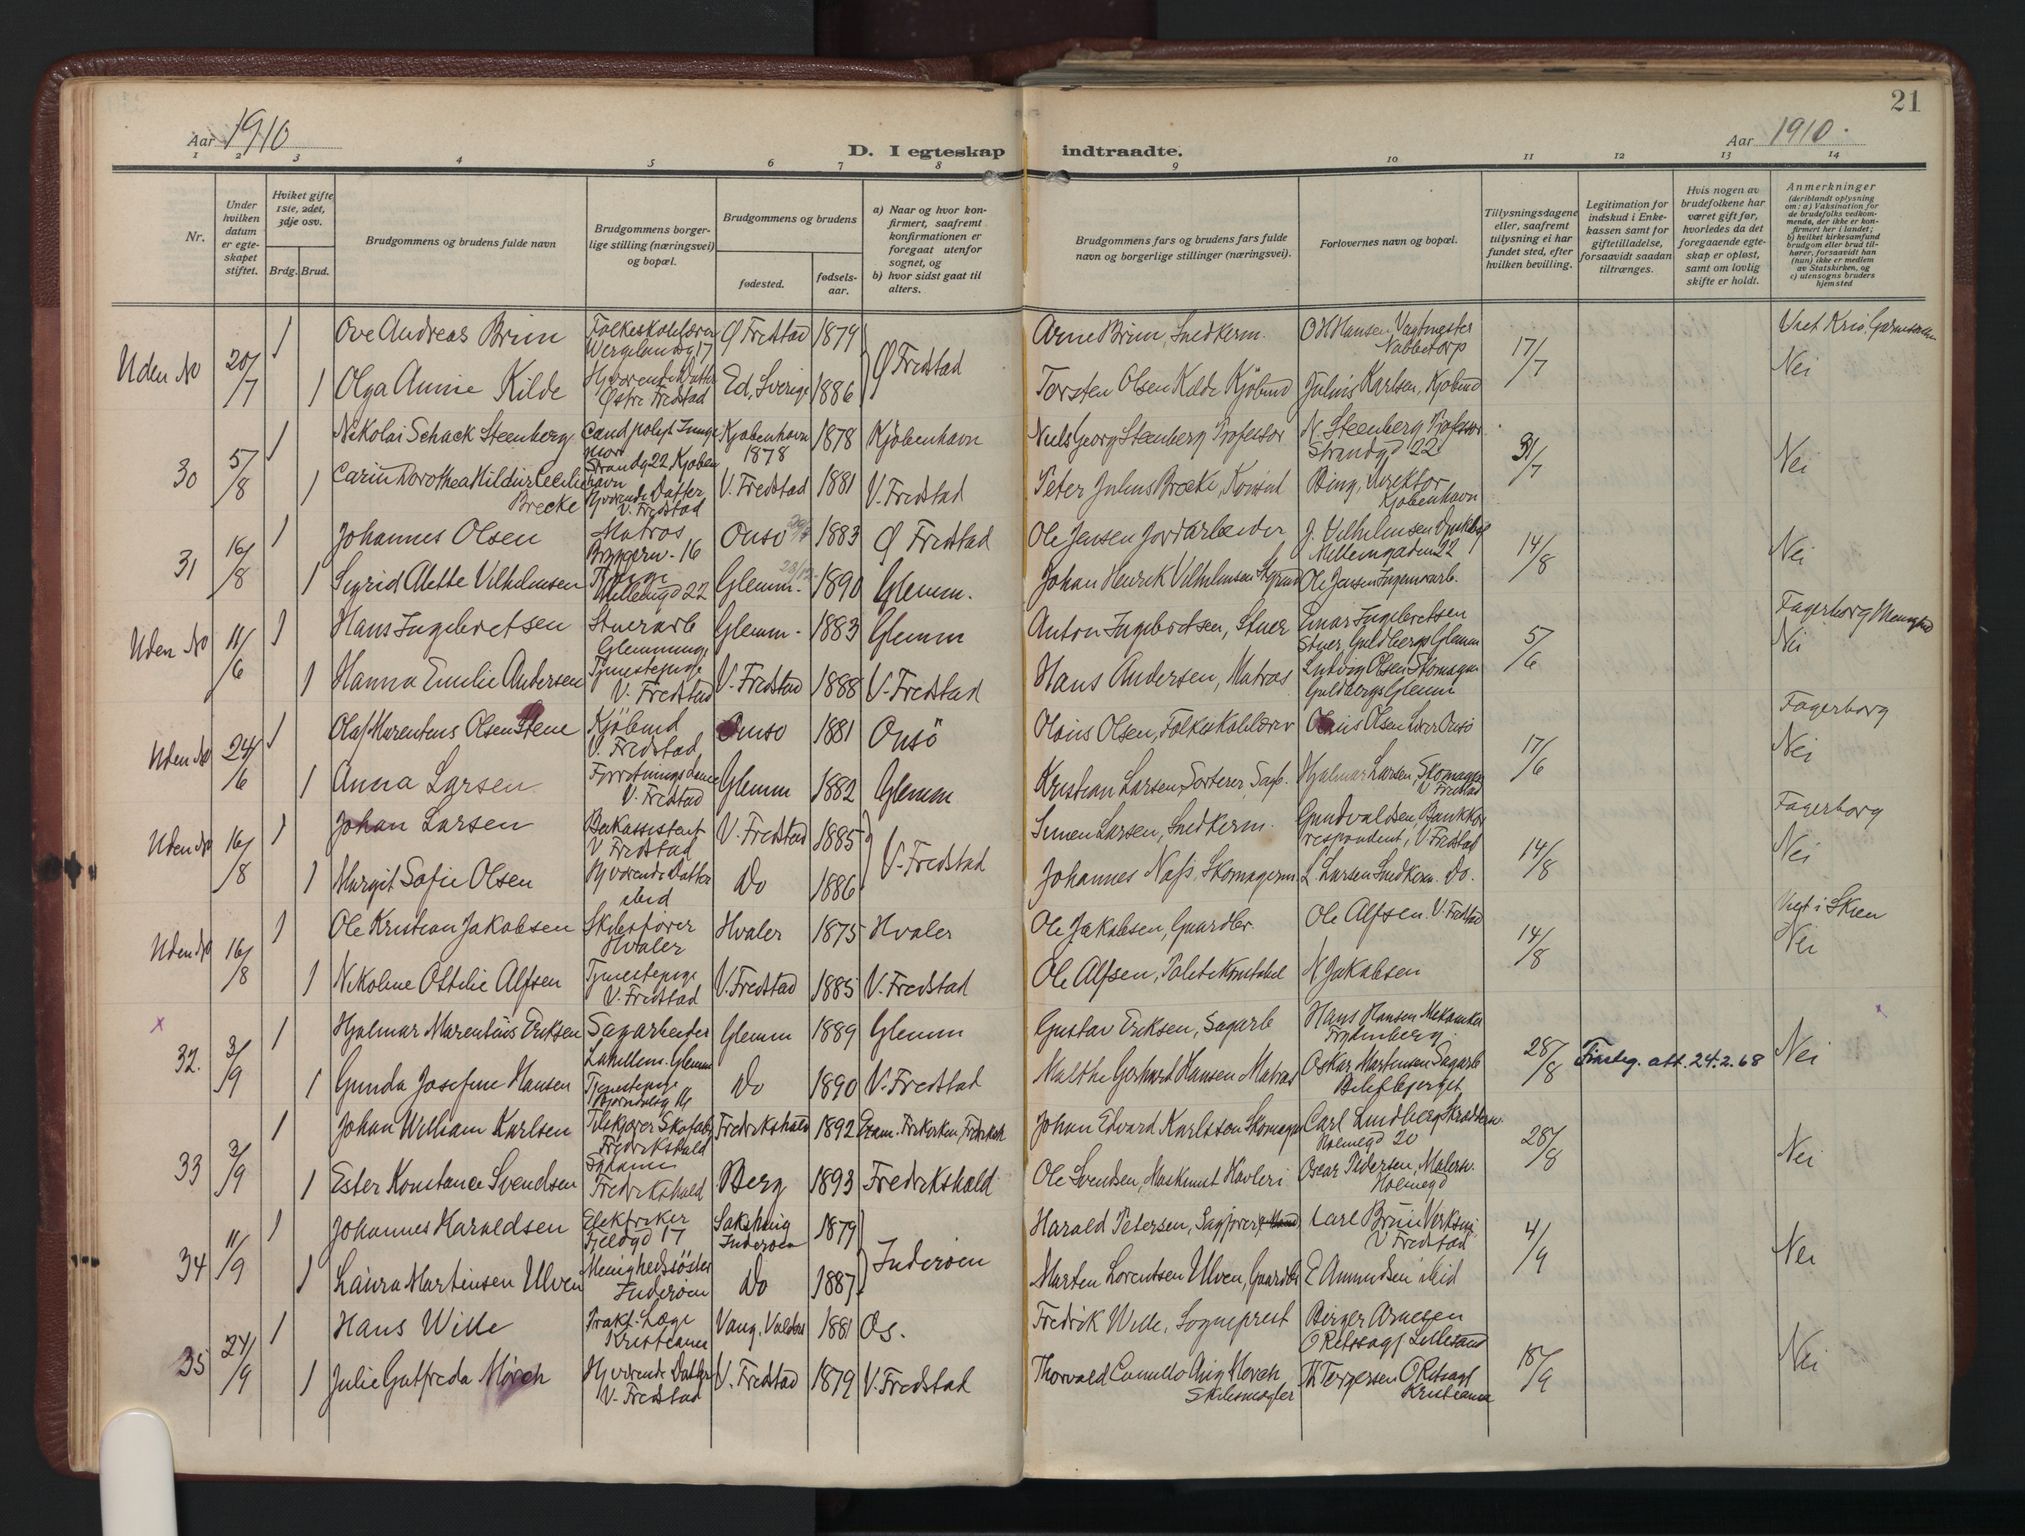 21
Aar 1910
D. I egteskap indtraadte.
Aar 1910.
1 2 3 4 5 6 7 8 9 10 11 12 13 14
Nr.
Under hvilken datum er egteskapet stiftet.
Hviket gifte 1ste, 2det, 3dje osv.
Brdg. Brud.
Brudgommens og brudens fulde navn
Brudgommens borgerlige stilling (næringsvei) og bopæl.
Brudgommens og brudens
fødested.
fødselsaar.
a) Naar og hvor konfirmert, saafremt konfirmationen er foregaat utenfor sognet, og
b) hvor sidst gaat til alters.
Brudgommens fars og brudens fars fulde navn og borgerlige stillinger (næringsvei).
Forlovernes navn og bopæl.
Tillysningsdagene eller, saafremt tillysning ei har fundet sted, efter hvilken bevilling.
Legitimation for indskud i Enkekassen samt for giftetilladelse, forsaavidt saadan tiltrænges.
Hvis nogen av brudefolkene har været gift før, hvorledes da det foregaaende egteskap er opløst, samt om lovlig skifte er holdt.
Anmerkninger
(deriblandt oplysning om: a) Vaksination for de brudefolks vedkommende, der ikke er konfirmert her i landet; b) hvilket kirkesamfund brudgom eller brud tilhører, forsaavidt han (hun) ikke er medlem av Statskirken, og c) utensogns bruders hjemsted
Uden No 20/7 1 Ove Andreas Brun Folkeskolelærer Wergelandsg 17 Ø Fredstad 1879 Ø Fredstad Arne Brun, Snedkerm. O H Hansen Vagtmester Nabbetorp 17/7 Nei
1 Olga Annie Kilde Hjværende Datter Østre Fredstad Ed, Sverige 1886 Torsten Olsen Kilde Kjøbmd Julius Karlsen, Kjøbmd
30 5/8 1 Nikolai Schack Steenberg Cand polyt Strandg 22 Kjøbenhavn Kjøbenhavn 1878 1878 Kjøbenhavn Niels Georg Steenberg Professor N. Steenberg Professor Strandgd 22 31/7 Nei
1 Carin Dorothea Hildur Cecilie Brecke Hjværende Datter V. Fredstad V. Fredstad 1881 V. Fredstad Peter Julius Brecke, Bing, Direktør Kjøbenhavn
31 16/8 1 Johannes Olsen Matros 16 Onsø 1883 Ø Fredstad Ole Jensen Jordarbeider J. Vilhelmsen 22 14/8 Nei
1 Sigrid Alette Vilhelmsen Tjepige 22 Glemm. 1890 Glemm. Johan Henrik Vilhelmsen Ole Jensen
Uden No 11/6 1 Hans Ingebretsen Stuerarb Glemm. 1883 Glemm Anton Ingebretsen, Stuer Einar Ingebretsen Stuer, Guldbergs Glemm 5/6 Fagerborg Menighed Nei
1 Hanna Emilie Andersen Tjenestepige V. Fredstad V. Fredstad 1888 V. Fredstad Hans Andersen, Matros Ludvig Olsen Skomager Guldbergs Glemm
Uden No 24/6 1 Olaf Marentius Olsen Stene Kjøbmd V. Fredstad Onsø 1881 Onsö Olaus Olsen, Folkeskolelærer Olaus Olsen Lærer Onsø 17/6 Fagerborg Nei
1 Anna Larsen Forretningsdame V. Fredstad Glemm 1882 Glemm Kristian Larsen, Sorterer, Sagb. Hjalmar Larsen, Skomager V Fredstad
Uden No 16/8 1 Johan Larsen V Fredstad V. Fredstad 1885 V. Fredstad Simen Larsen, Snedkerm. Gundvaldsen, Bankkorrespondent, V Fredstad 14/8 Fagerborg Nei
1 Margit Sofie Olsen Hjværende Datter ibid Do 1886 Johannes Næss, Skomagerm L. Larsen Snedkerm. Do.
Uden No 16/8 1 Ole Kristian Jakobsen Skibsfører Hvaler Hvaler 1875 Hvaler Ole Jakobsen, Gaardbr. Ole Alfsen. V. Fredstad 14/8 Viet i Skien Nei
1 Nikoline Ottilie Alfsen Tjenestepige V. Fredstad V. Fredstad 1885 V. Fredstad Ole Alfsen, Politikonstabel N Jakobsen
x
32. 3/9 1 Hjalmar Marentius Eriksen Sagarbeider Glemm 1889 Glemm Gustav Eriksen, Sagarb Hans Hansen Mekaniker Frydenberg 28/8 Finsteg. att. 24.2.68 Nei
1 Gunda Josefine Hansen Tjenestepige Do 1890 V. Fredstad Malthe Gerhard Hansen Matros Oskar Martinsen Sagarb
33 3/9 1 Johan William Karlsen Fredrikshald Fredrikshald 1892 Johan Edvard Karlsson Skomager Carl Lundberg Skrædderm. Holmegd 20 28/8 Nei
1 Ester Konstance Svendsen Fredrikshald Berg 1893 Fredrikshald Ole Svendsen, Maskinist Høvleri Oscar Pedersen, Malersv. Holmegd
34 11/9 1 Johannes Haraldsen Elektriker 17 Sakshaug Inderøen 1879 Inderøen Harald Petersen, Carl Bruu V Fredstad 4/9 Nei
1 Laura Martinsen Ulven Menighedssöster Inderøen Do 1887 Marten Lorentsen Ulven, Gaardbr E Amundsen ibid
35 24/9 1 Hans Wille Prakt. Læge Kristiania Vang, Valdres 1881 Os. Fredrik Wille, Sogneprest Birger Arnesen O Retssagf Lillesand 18/9 Nei
1 Julie Gutfreda Mørch Hjværende Datter V. Fredstad V. Fredstad 1879 V. Fredstad Thorvald Camillo Aug Mørch Skibsmægler Th Torgersen O Retssagf Kristiania